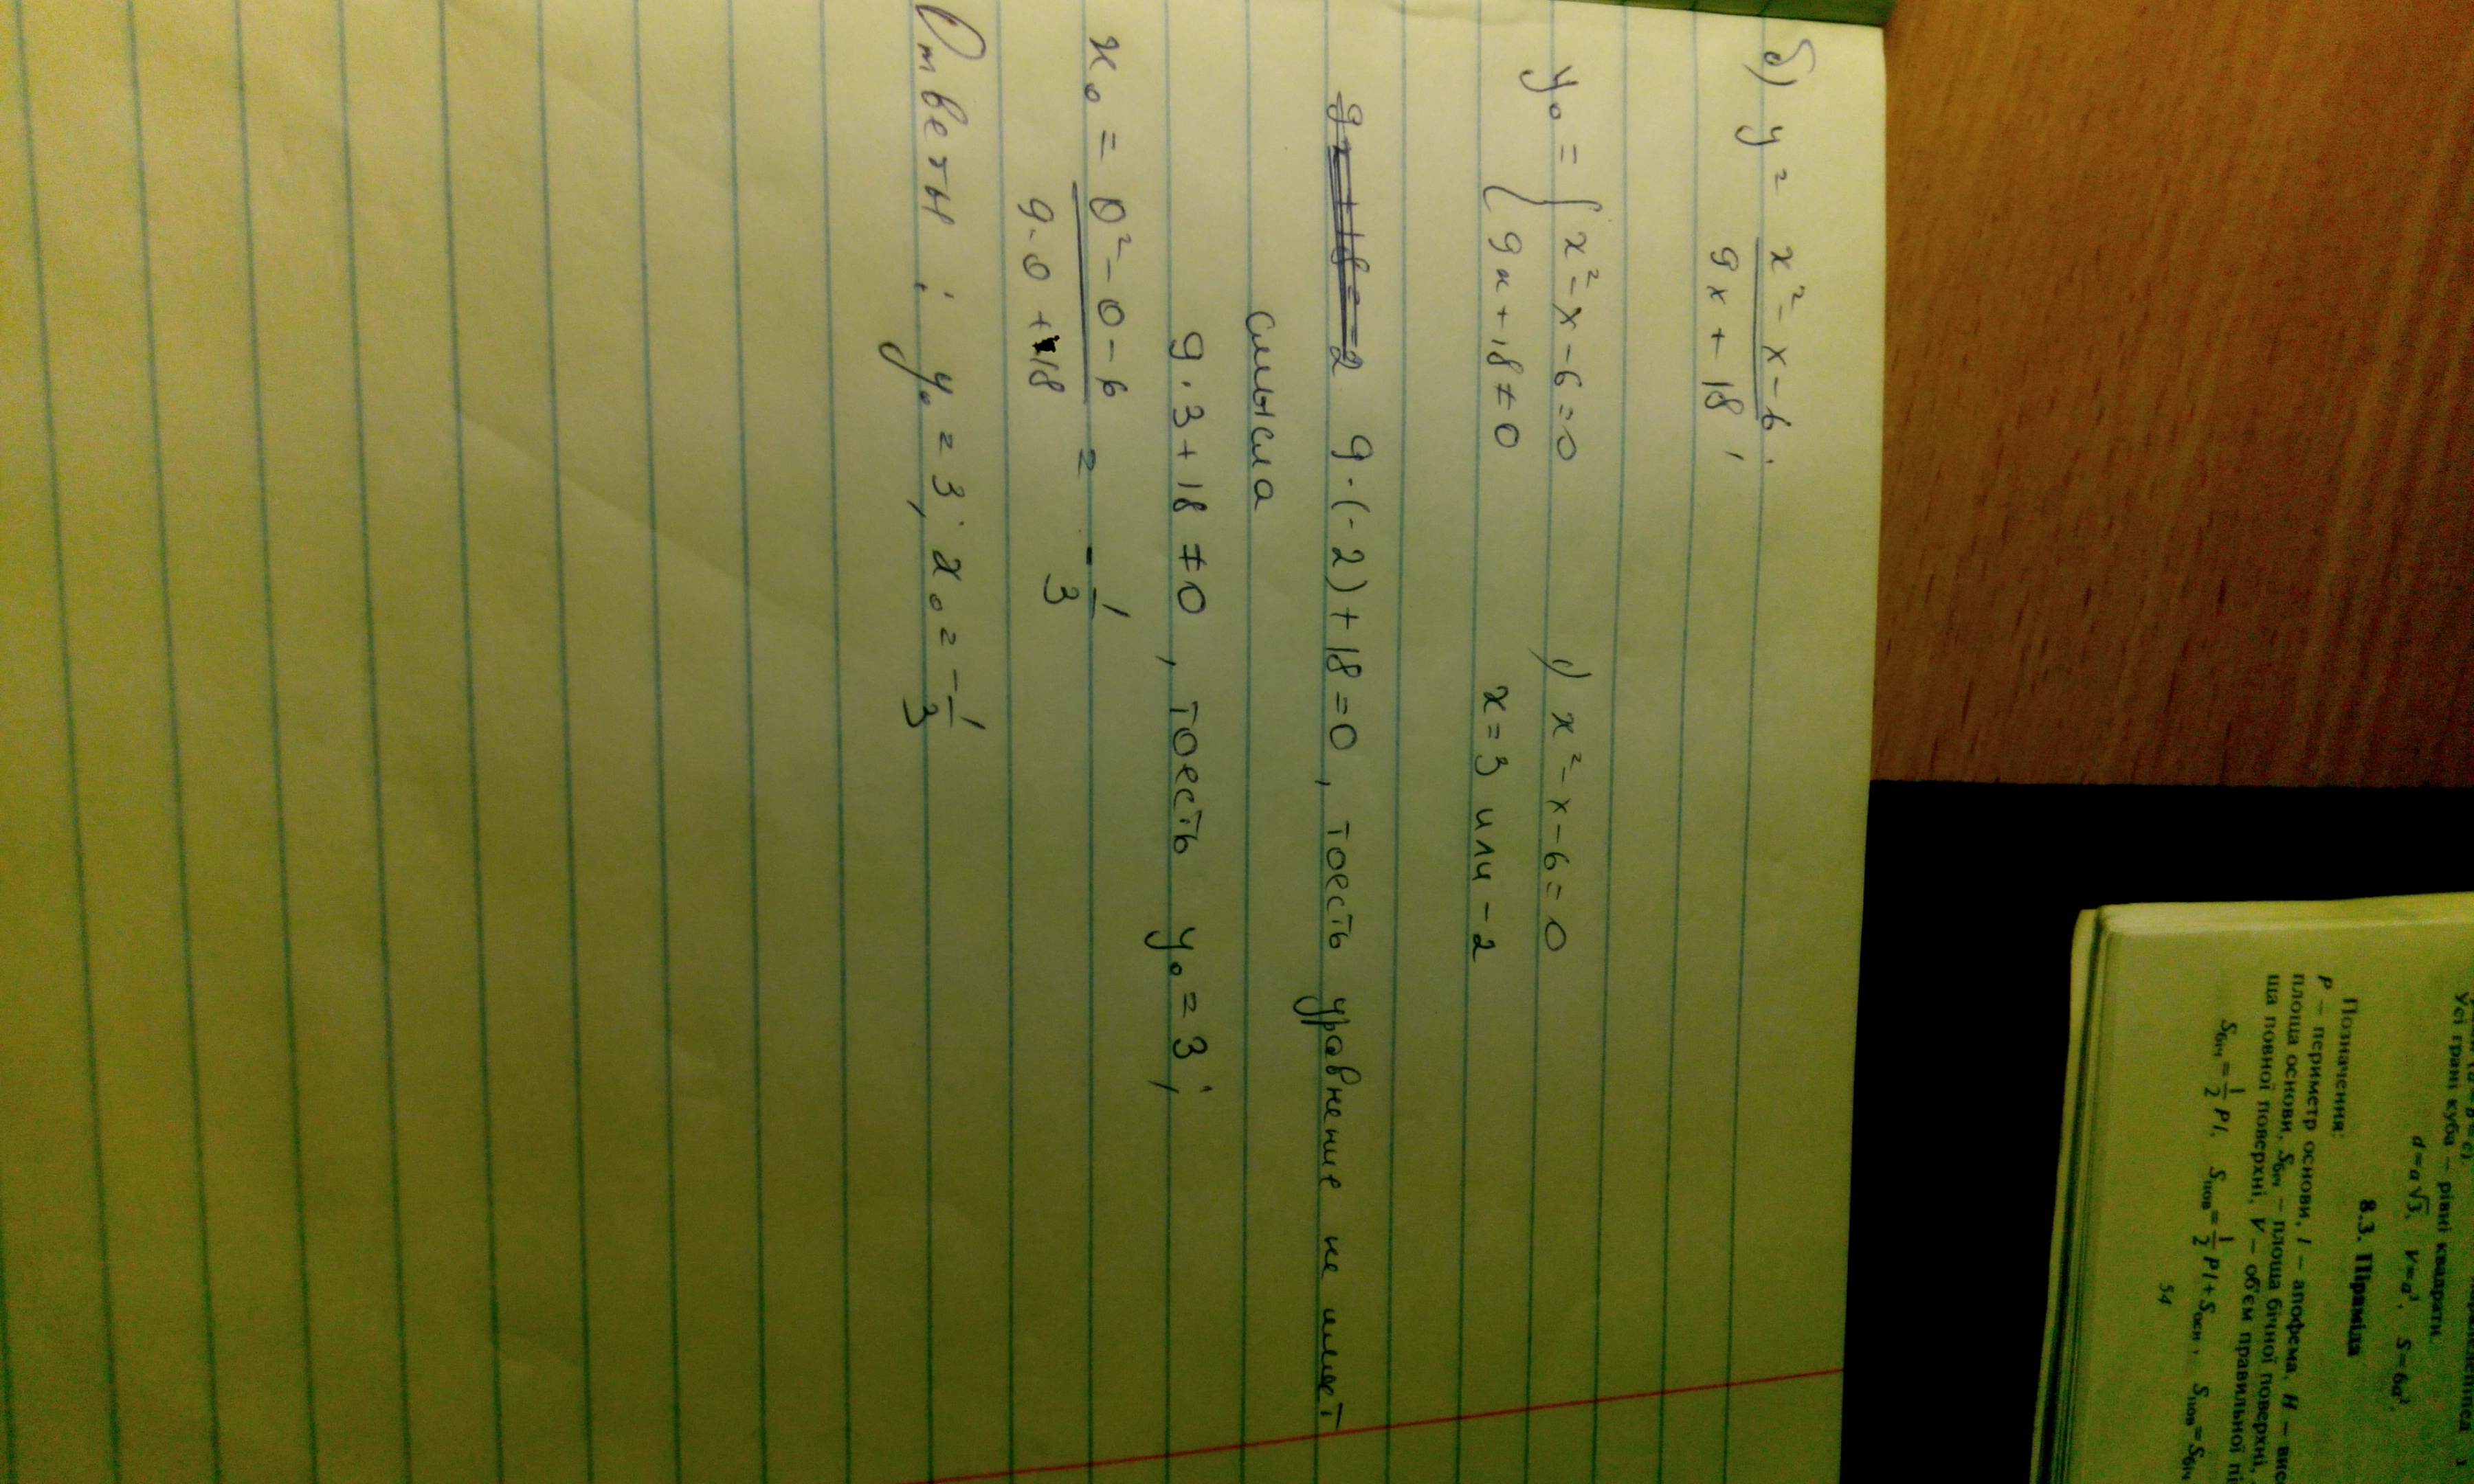 б) y = x² - x - 6 / 9x + 18 ;
y₀ = { x² - x - 6 = 0    1) x² - x - 6 = 0
{ 9x + 18 ≠ 0    x = 3 или -2
9x + 18 = -2 9·(-2) + 18 = 0, тоесть уравнение не имеет
смысла
9·3 + 18 ≠ 0, тоесть y₀ = 3;
x₀ = 0² - 0 - 6 / 9·0 + 18 = - 1/3
Ответы: y₀ = 3; x₀ = - 1/3
Усі грані куба – рівні квадрати.
d = a√3, V = a³, S = 6a².
8.3. Піраміда
Позначення:
P – периметр основи, l – апофема, H –
площа основи, Sбіч – площа бічної поверхні,
ща повної поверхні, V – об'єм правильної
Sбіч = 1/2 Pl, Sпов = 1/2 Pl + Sосн, Sпов = Sбіч
54